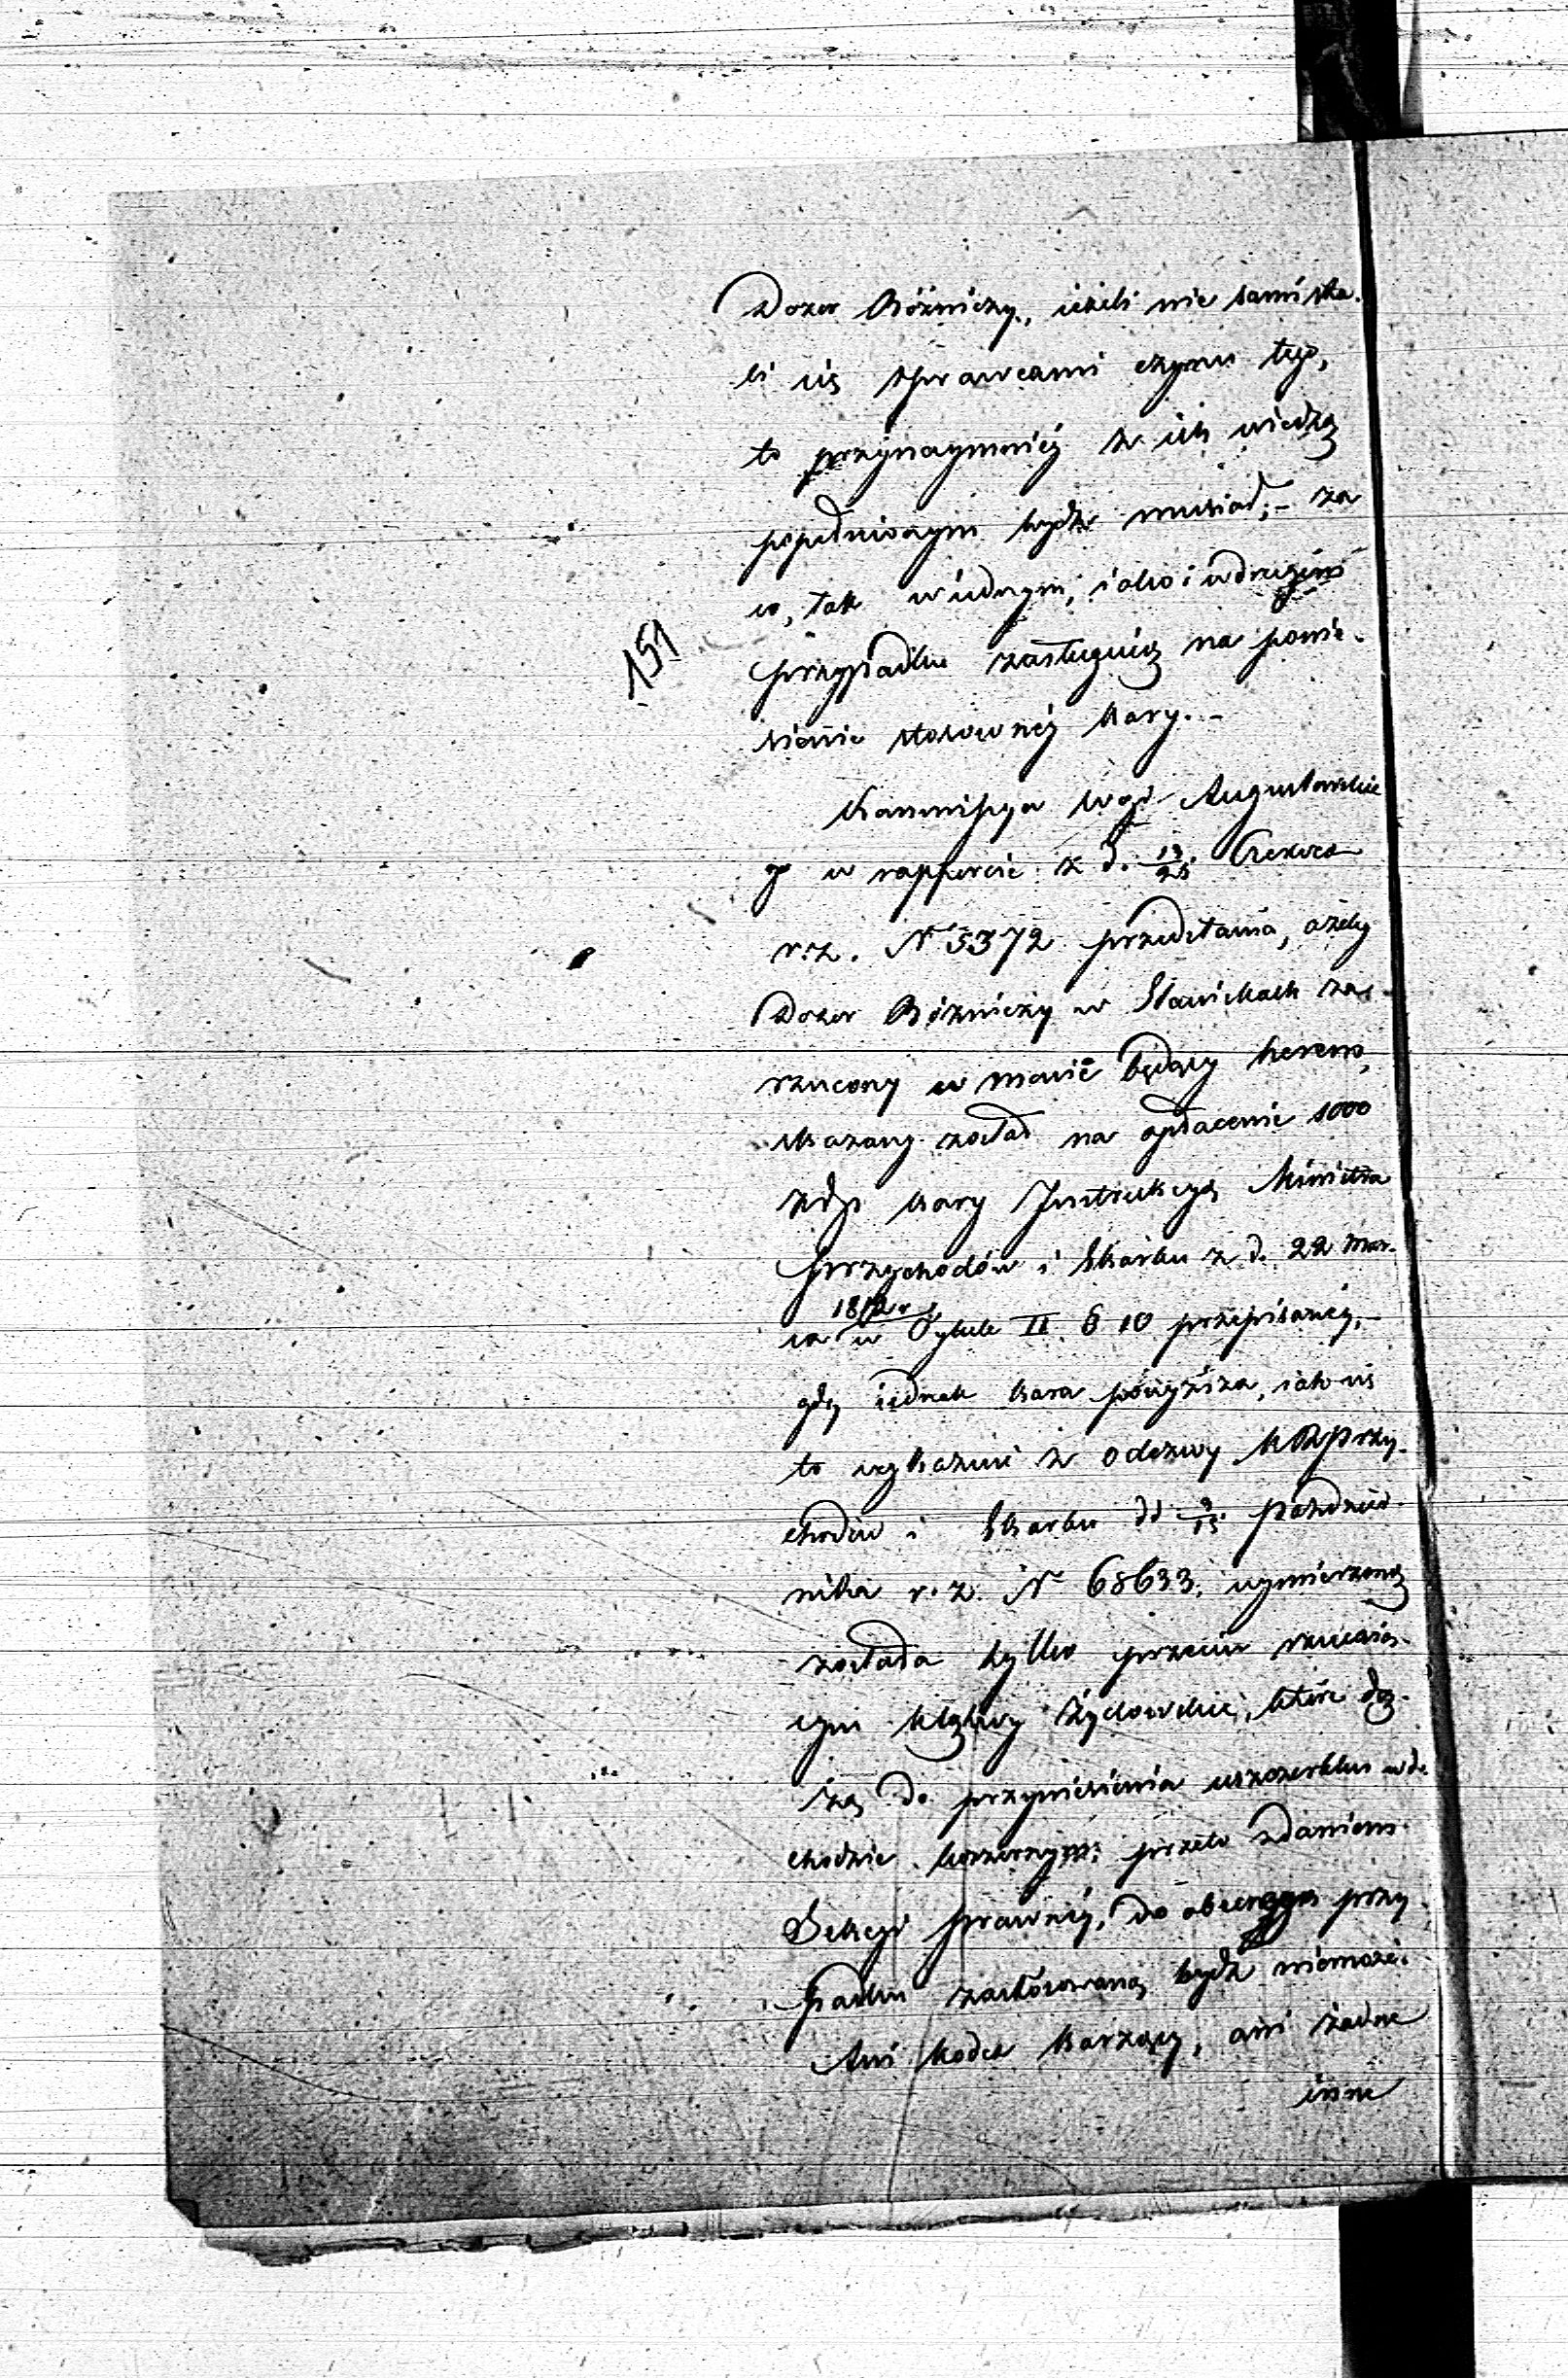 Dozor Bóżniczy, ieżeli nie sami sta-
li się sprawcami czynu tego,
to przynaymniey z ich wiedzą
popełnionym bydz musiał; – za
co, tak w iednym, iako i w drugim
przypadku zasługuią na ponie-
sienie stosowney kary. –
Kommissya Wojew. Augustowskie
go w rapporcie z d. 13/25 Czerwca
r. z. N 5372 przedstawia, ażeby
Dozor Bóżniczy w Sławickach za
rzucony w mowie będący herem,
skazany został na opłacenie 1000
złp kary Instrukcyą Ministra
Przychodów i Skarbu z d. 22 Mar-
ca 1812 r. w Tytule II. § 10 przepisaney, –
gdy iednak kara powyższa, iak się
to wykazuie z odezwy KRPrzy-
chodów i Skarbu dd 3/15 Paździer-
nika r. z. N 68633, wymierzoną
została tylko przeciw rzucaią-
cym klątwy Żydowskie, które dą-
żą do przyniesienia uszczerbku w do
chodzie koszernym; przeto zdaniem
Sekcyi prawney, do obecnego przy-
padku zastósowaną bydź niemoże.
Ani Kodex Karzący, ani żadne
inne
151